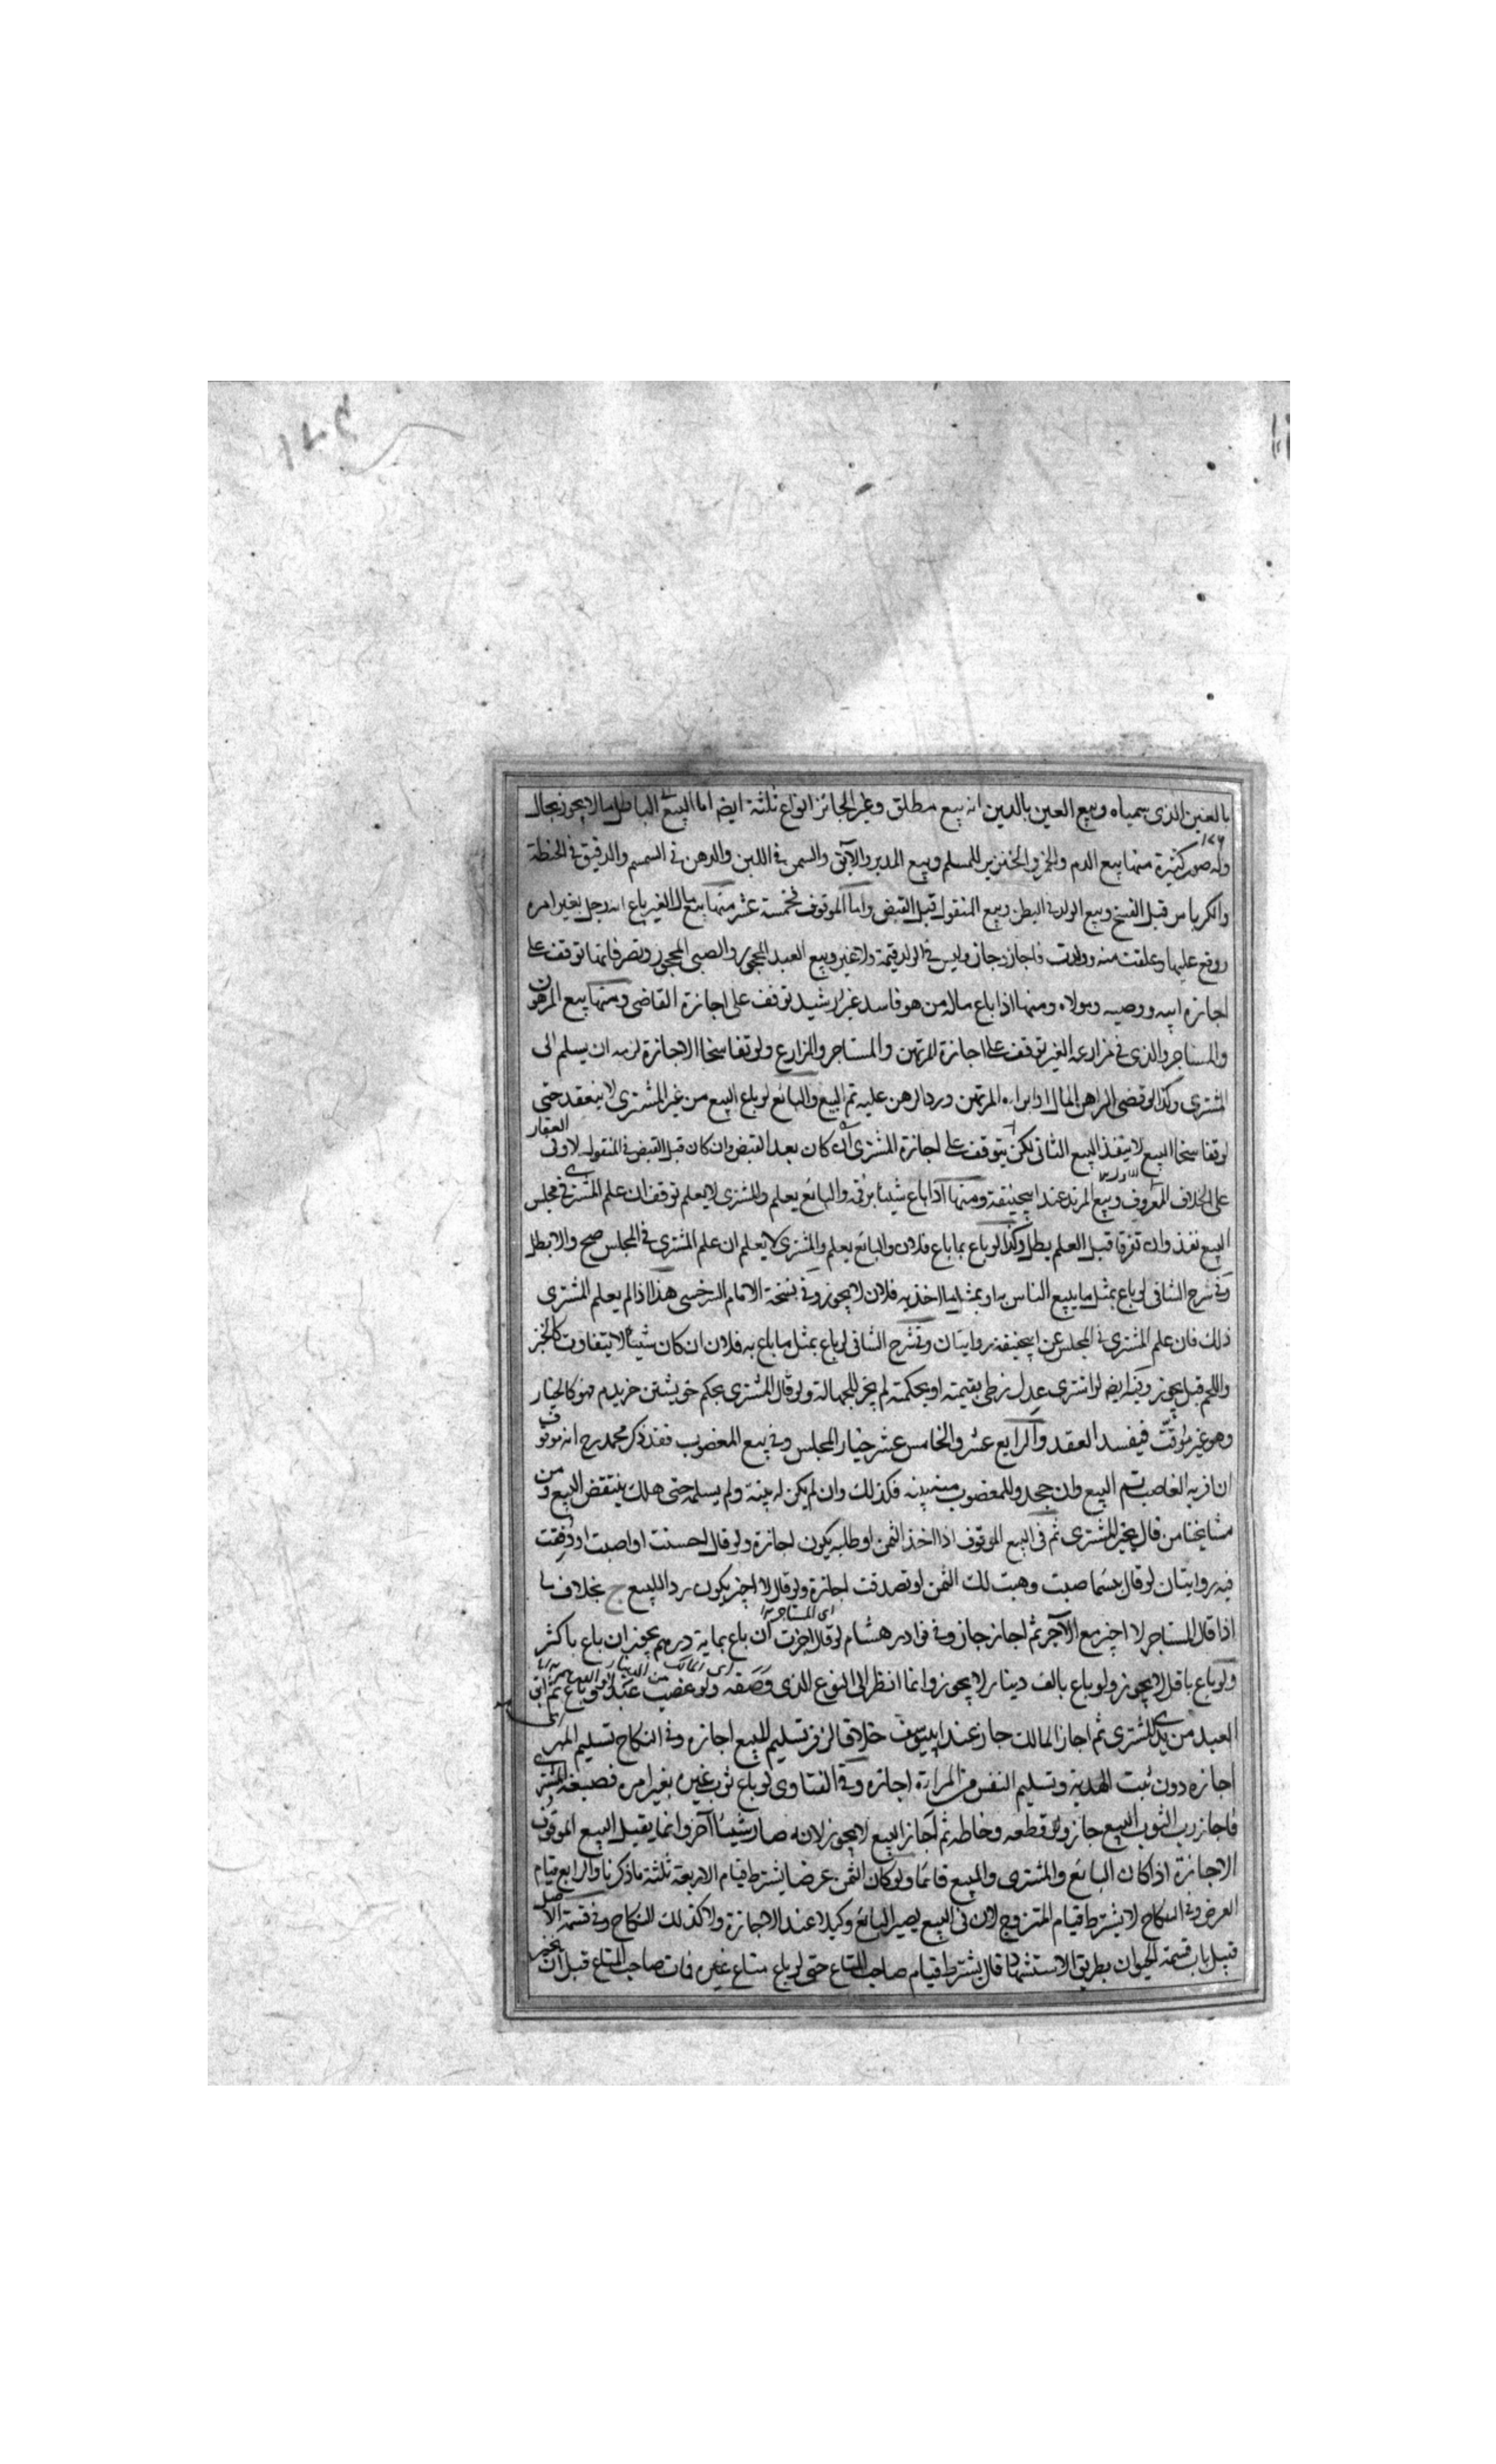 بالعين الذى سميناه وبيع العين بالدين انه بيع مطلق وغير الجائز انواع ثلثة ايضا اما البيع الباطل مالا يجوز بحال
وله صور كثيرة منها بيع الدم والخمر والخنزير للمسلم وبيع المدبر والآبق والسمن فى اللبن والدهن فى السمسم والدقيق فى الحنطة
والكرباس قبل النسج وبيع الولد فى البطن وبيع المنقول قبل القبض واما الموقوف فخمسة عشر منها بيع مال الغير باع امة رجل بغير امره
ووقع عليها وعلقت منه وولدت فاجاز جاز وليس فى الولد قيمة ولا غير وبيع العبد المحجور والصبى المحجور وتصرفاتهما توقف على
اجازة ابيه ووصيه ومولاه ومنها اذا باع ماله من هو فاسد غير رشيد توقف على اجازة القاضى ومنها بيع المرهون
والمستاجر والذى فى مزارعة الغير توقف على اجازة المرتهن والمستاجر والمزارع ولو تفاسخا الاجازة لزمه ان يسلم الى
المشترى وكذا لو قضى الراهن المال او ابراه المرتهن ورد الرهن عليه تم البيع والبائع لو باع المبيع من غير المشترى لا ينعقد حتى
لو تفاسخا البيع لا ينفذ البيع الثانى لكن يتوقف على اجازة المشترى ان كان بعد القبض وان كان قبل القبض فى المنقول لا وفى العقار
على الخلاف المعروف وبيع المرتد عند ابيحنيفة ومنها اذا باع شيئا برقمه والبائع يعلم والمشترى لا يعلم توقف ان علم المشترى فى مجلس
البيع نفذ وان تفرقا قبل العلم بطل وكذا لو باع بما باع فلان والبائع يعلم والمشترى لا يعلم ان علم المشترى فى المجلس صح والا بطل
وفى شرح الشافى لو باع بمثل ما يبيع الناس به او بمثل ما اخذ به فلان لا يجوز وفى نسخة الامام السرخسى هذا اذا لم يعلم المشترى
ذلك فان علم المشترى فى المجلس عن ابيحنيفة روايتان وفى شرح الشافى لو باع بمثل ما باع به فلان ان كان شيئا لا يتفاوت كالخبز
واللحم قيل يجوز وفيه ايضا لو اشترى عدل زطى بقيمته او بحكمه لم يجز للجهالة ولو قال المشترى بحكم خويشتن خريدم فهو كالخيار
وهو غير موقت فيفسد العقد والرابع عشر والخامس عشر خيار المجلس وفى بيع المغصوب فقد ذكر محمد رح انه موقوف
ان اقر به الغاصب تم البيع وان جحد وللمغصوب منه بينه فكذلك وان لم يكن له بينة ولم يسلمه حتى هلك ينتقض البيع ومن
مشايخنا من قال يخير المشترى ثم فى البيع الموقوف اذا اخذ الثمن او طلبه يكون اجازة ولو قال احسنت او اصبت او وفقت
فيه روايتان لو قال بئسما صنعت وهبت لك الثمن او تصدقت اجازة ولو قال لا اجيز يكون ردا للبيع بخلاف ما
اذا قال المستاجر لا اجيز بيع الآجر ثم اجاز جاز وفى نوادر هشام لو قال اجزت ان باع بماية درهم يجوز ان باع باكثر
ولو باع باقل لا يجوز ولو باع بالف دينار لا يجوز وانما انظر الى النوع الذى وصفه ولو غصب عبدا وباع ثم ابق
العبد من يد المشترى ثم اجاز المالك جاز عند ابييوسف خلافا لزفر تسليم المبيع اجازة وفى النكاح تسليم المهر
اجازة دون بعث الهدية وتسليم النفس من المراة اجازة وفى الفتاوى لو باع ثوب غيره بغير امره فصبغه المشترى
فاجاز رب الثوب البيع جاز ولو قطعه وخاطه ثم اجاز البيع لا يجوز لانه صار شيئا آخر وانما يقبل البيع الموقوف
الاجازة اذا كان البائع والمشترى والمبيع قائما ولو كان الثمن عرضا يشترط قيام الاربعة ثلثة ما ذكرنا والرابع قيام
العرض وفى النكاح لا يشترط قيام المتزوج لان فى البيع يصير البائع وكيلا عند الاجازة ولا كذلك النكاح وفى قسمة الاصل
قبيل باب قسمة الحيوان بطريق الاستشهاد قال يشترط قيام صاحب المتاع حتى لو باع متاع غيره فمات صاحب المتاع قبل ان يجيز